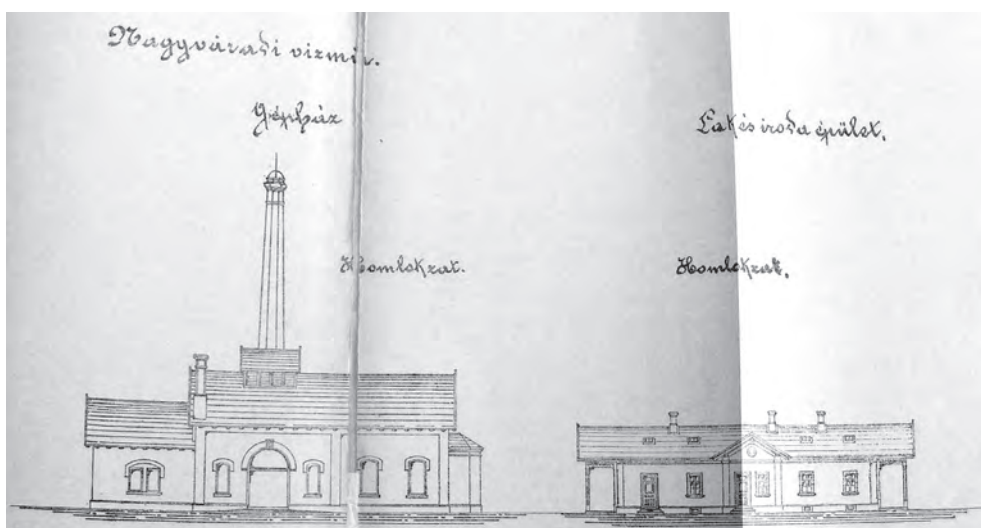 Nagyváradi vizmű.
Gépház
Lak és iroda épület.
Homlokzat.
Homlokzat.